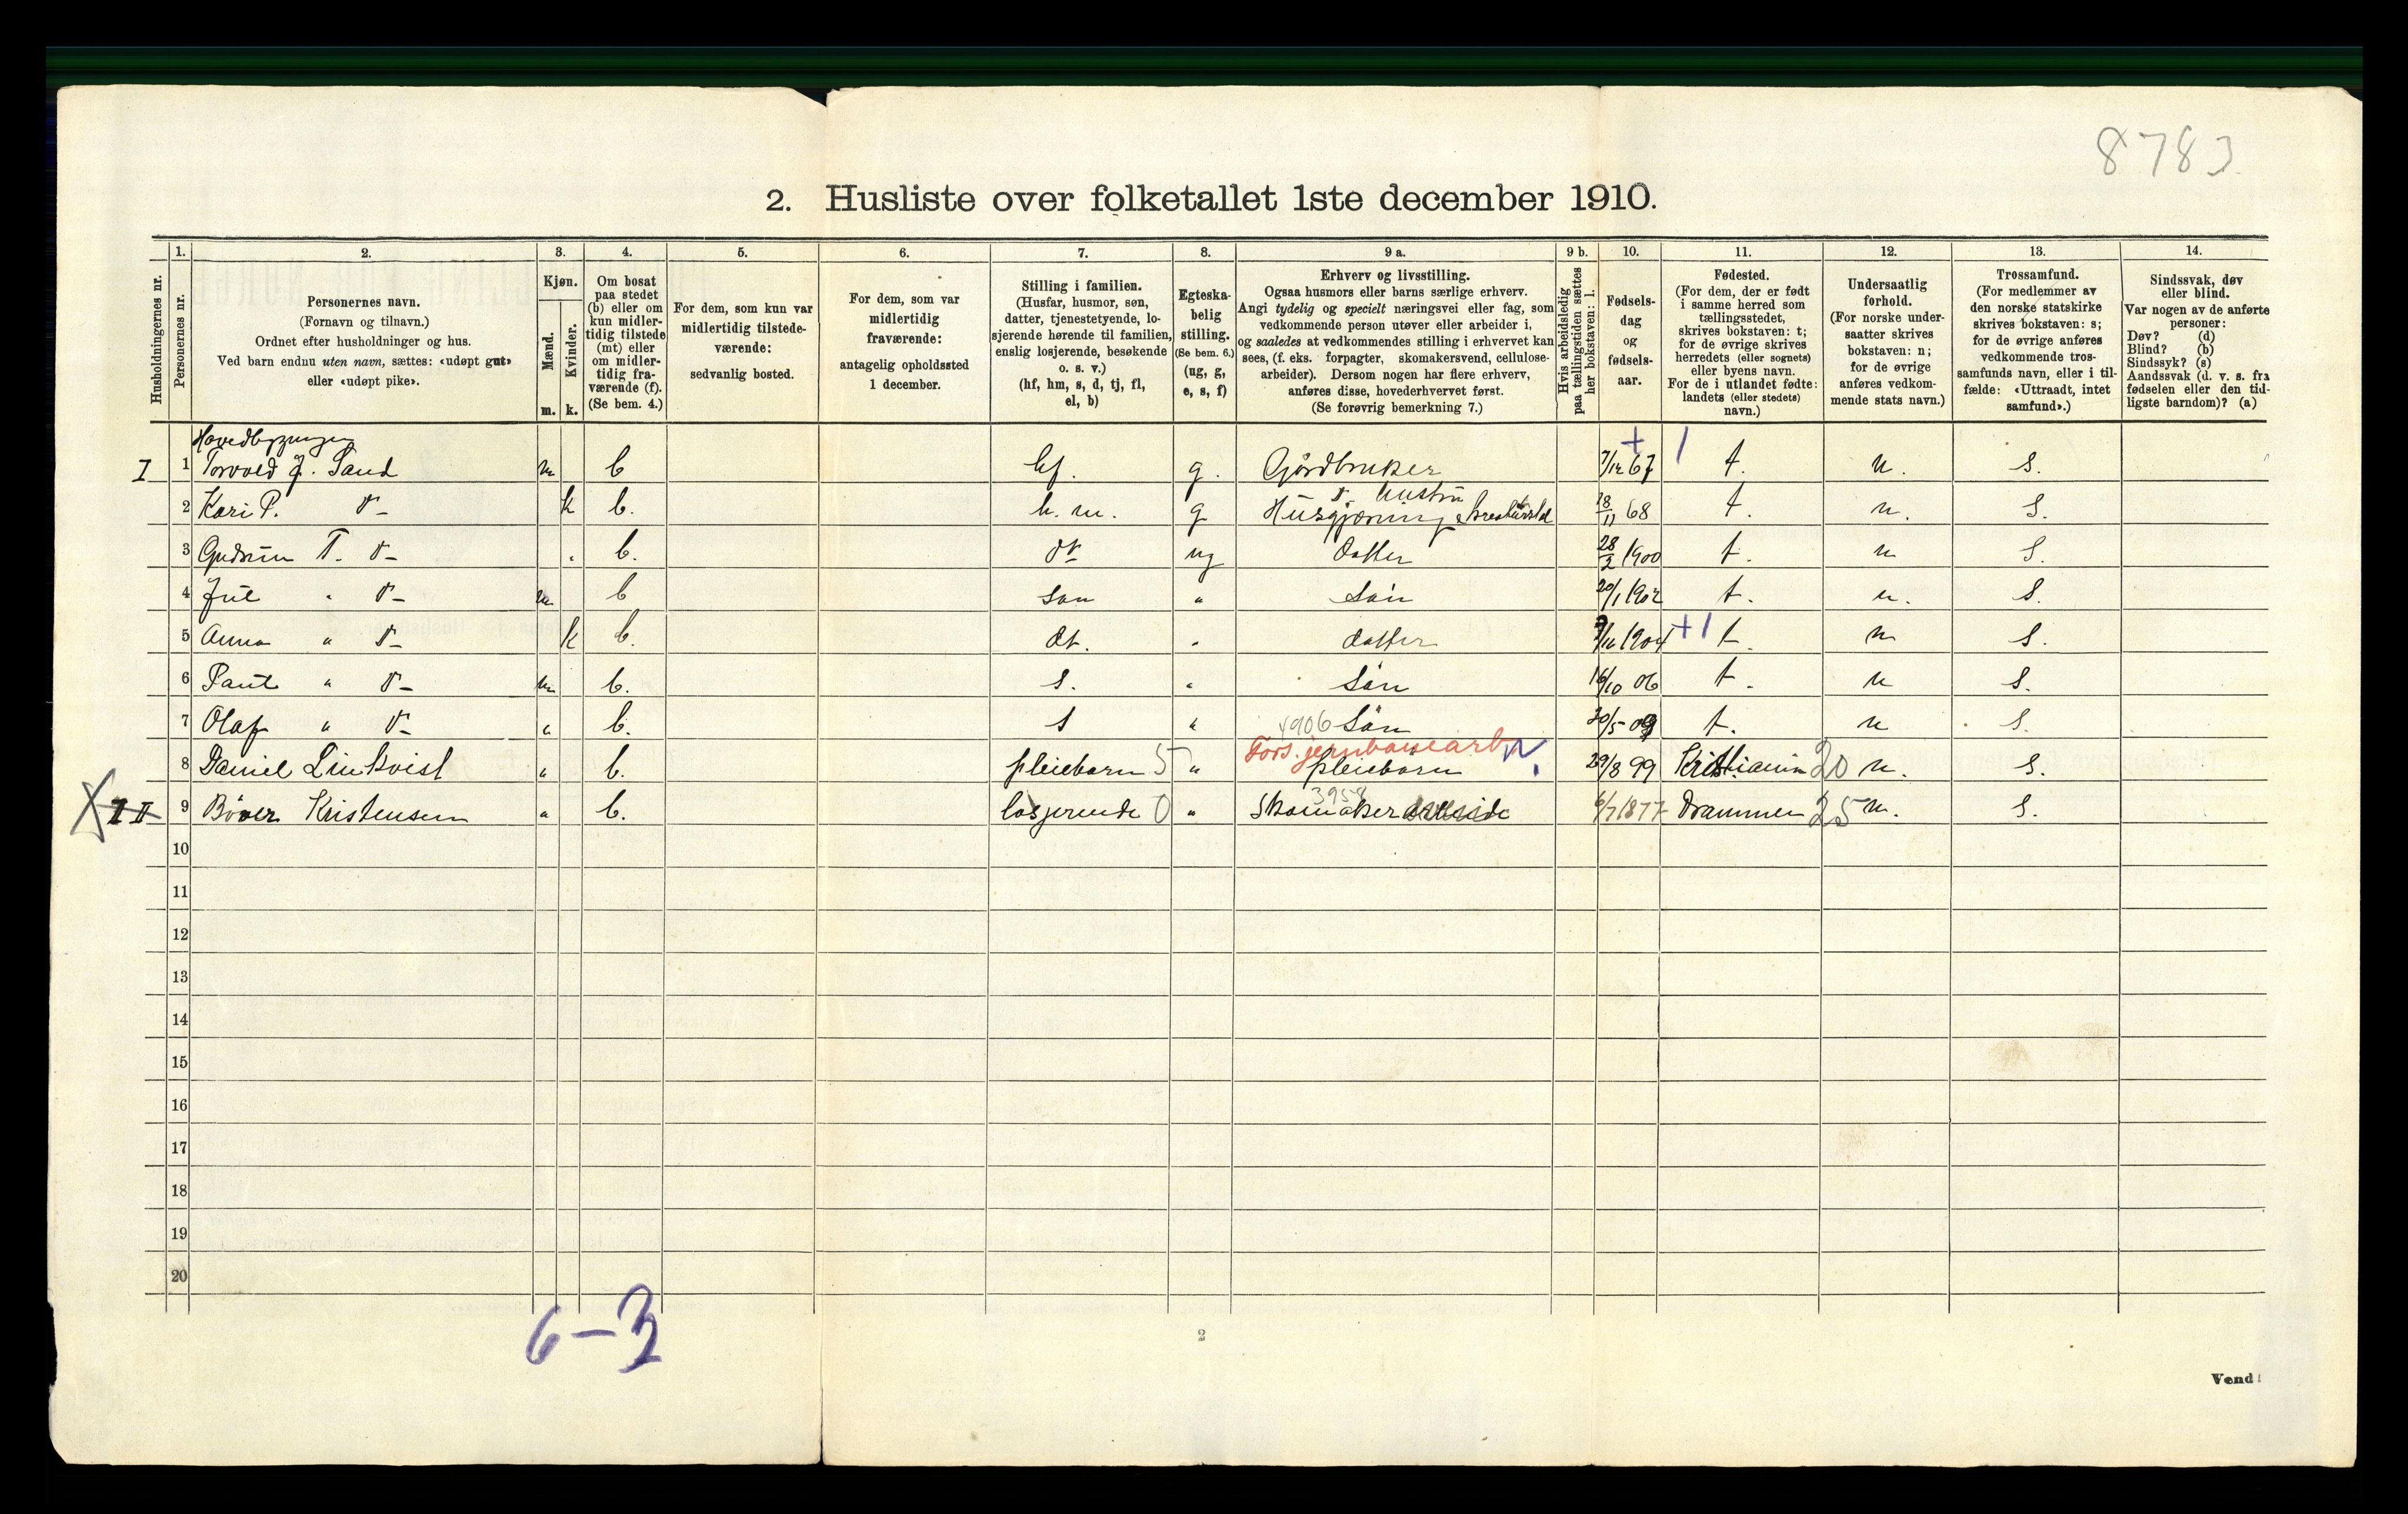 8783
2. Husliste over folketallet 1ste december 1910.
Husholdningernes nr.
1.
Personernes nr.
2.
Personernes navn.
(Fornavn og tilnavn.)
Ordnet efter husholdninger og hus.
Ved barn endnu uten navn, sættes: «udøpt gut»
eller «udøpt pike».
3.
Kjøn.
Mænd.
Kvinder.
m. k.
4.
Om bosat
paa stedet
(b) eller om
kun midler-
tidig tilstede
(mt) eller
om midler-
tidig fra-
værende (f).
(Se bem. 4.)
5.
For dem, som kun var
midlertidig tilstede-
værende:
sedvanlig bosted.
6.
For dem, som var
midlertidig
fraværende:
antagelig opholdssted
1 december.
7.
Stilling i familien.
(Husfar, husmor, søn,
datter, tjenestetyende, lo-
sjerende hørende til familien,
enslig losjerende, besøkende
o. s. v.)
(hf, hm, s, d, tj, fl,
el, b)
8.
Egteska-
belig
stilling.
(Se bem. 6.)
(ug, g,
e, s, f)
9 a.
Erhverv og livsstilling.
Ogsaa husmors eller barns særlige erhverv.
Angi tydelig og specielt næringsvei eller fag, som
vedkommende person utøver eller arbeider i,
og saaledes at vedkommendes stilling i erhvervet kan
sees, (f. eks. forpagter, skomakersvend, cellulose-
arbeider). Dersom nogen har flere erhverv,
anføres disse, hovederhvervet først.
(Se forøvrig bemerkning 7.)
9 b.
Hvis arbeidsledig
paa tællingstiden sættes
her bokstaven: l.
10.
Fødsels-
dag
og
fødsels-
aar.
11.
Fødested.
(For dem, der er født
i samme herred som
tællingsstedet,
skrives bokstaven: t;
for de øvrige skrives
herredets (eller sognets)
eller byens navn.
For de i utlandet fødte:
landets (eller stedets)
navn.)
12.
Undersaatlig
forhold.
(For norske under-
saatter skrives
bokstaven: n;
for de øvrige
anføres vedkom-
mende stats navn.)
13.
Trossamfund.
(For medlemmer av
den norske statskirke
skrives bokstaven: s;
for de øvrige anføres
vedkommende tros-
samfunds navn, eller i til-
fælde: «Uttraadt, intet
samfund».)
14.
Sindssvak, døv
eller blind.
Var nogen av de anførte
personer:
Døv? (d)
Blind? (b)
Sindssyk? (s)
Aandssvak (d. v. s. fra
fødselen eller den tid-
ligste barndom)? (a)
I 1 Torvald J. Sand m b hf. g. Gjårdbruker 7/12 67 + / t. n. S.
2 Kari P. do k b. h.m. g do hustru Husgjærning 18/11 68 t. n. S.
3 Gudrun T. do " b. dt ug datter 28/2 1900 t. n S.
4 Jul " do m b søn " søn 20/1 1902 t. n. S.
5 Anna " do k b. dt. " datter 1904 + 1 t n S.
6 Paul " do m b. s. " søn 16/10 06 t. n S.
7 Olaf " do " b. s " søn 30/5-09 t. n S.
Fors. jernbanearb.
8 Daniel Linkvist " b. pleiebarn 5 " pleiebarn 29/8 99 Kristiania 20 n. S.
X II 9 Bøver Kristensen " b. losjerende 0 " Skomaker 6/7 1877 Drammen 25 n. S.
10
11
12
13
14
15
16
17
18
19
20
6-3
2
Vend!